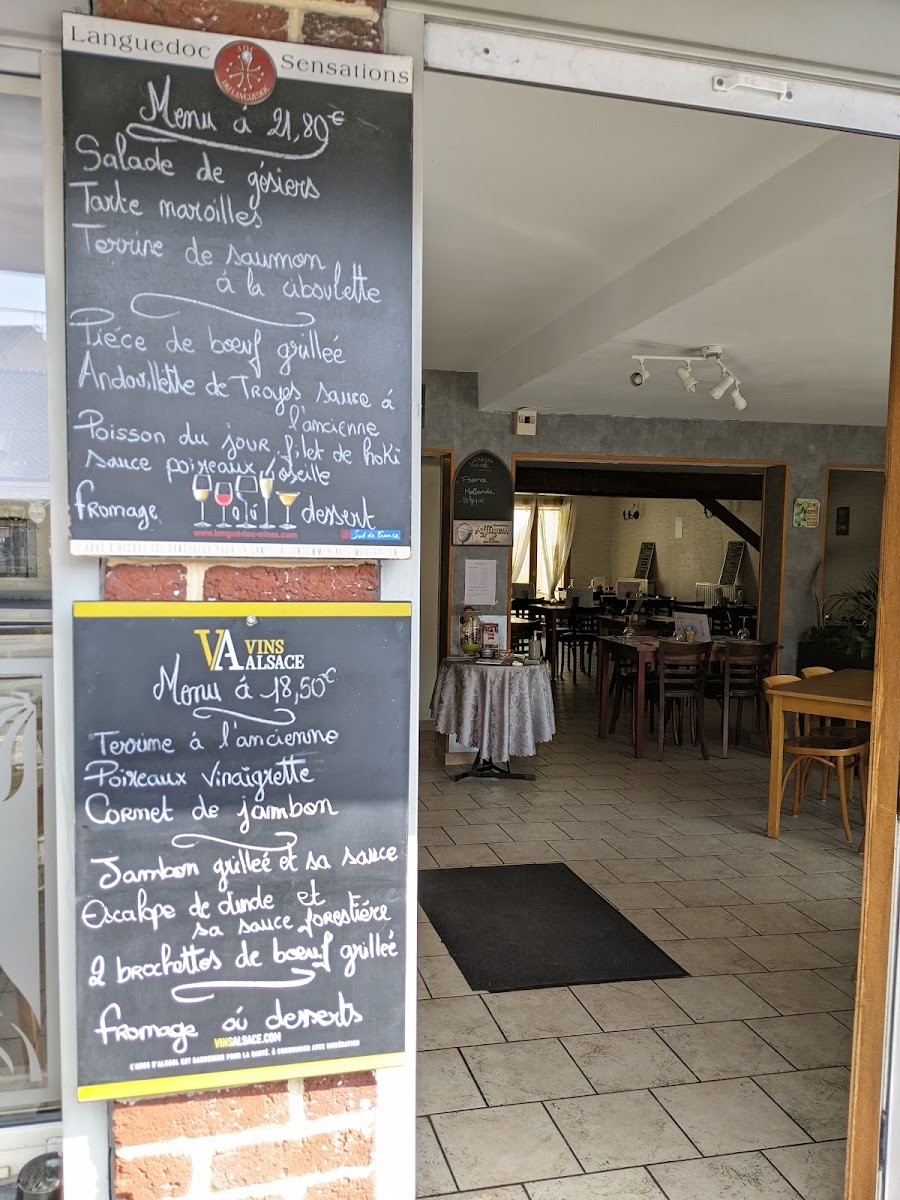 Languedoc Sensations
AOC
DU LANGUEDOC
Menu à 21,80€
Salade de gésiers
Tarte maroilles
Terrine de saumon
à la ciboulette
Piéce de bœuf grilleé
Andouillette de Troyes sauce á
l'ancienne
Poisson du jour, filet de hoki
sauce poireaux, oseille
fromage où dessert
www.languedoc-wines.com
Sud de France
VA VINS ALSACE
Menu á 18,50€
Terrine á l'ancienne
Poireaux vinaigrette
Cornet de jambon
Jambon grilleé et sa sauce
Escalope de dinde et
sa sauce forestiére
2 brochettes de bœuf grilleé
fromage oú desserts
VINSALSACE.COM
L'ABUS D'ALCOOL EST DANGEREUX POUR LA SANTÉ. À CONSOMMER AVEC MODÉRATION
France
- Hollande
- Belgique
Affligem